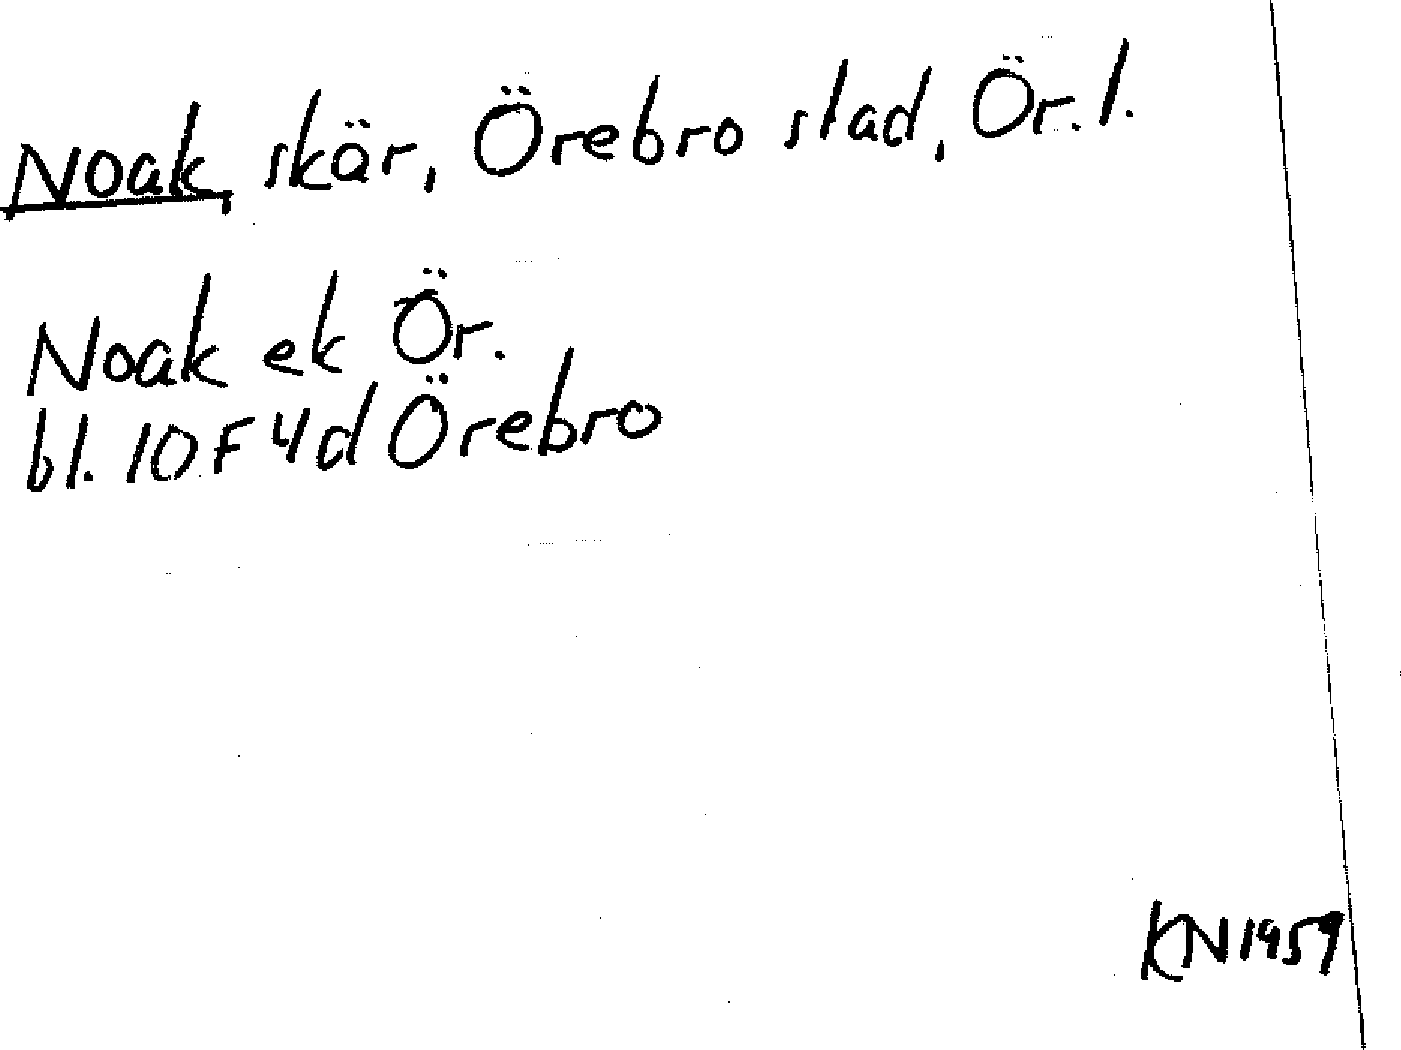 Noak, skär, Örebro stad, Ör. l.
Noak ek Ör.
bl. 10F4d Örebro
KN 1959